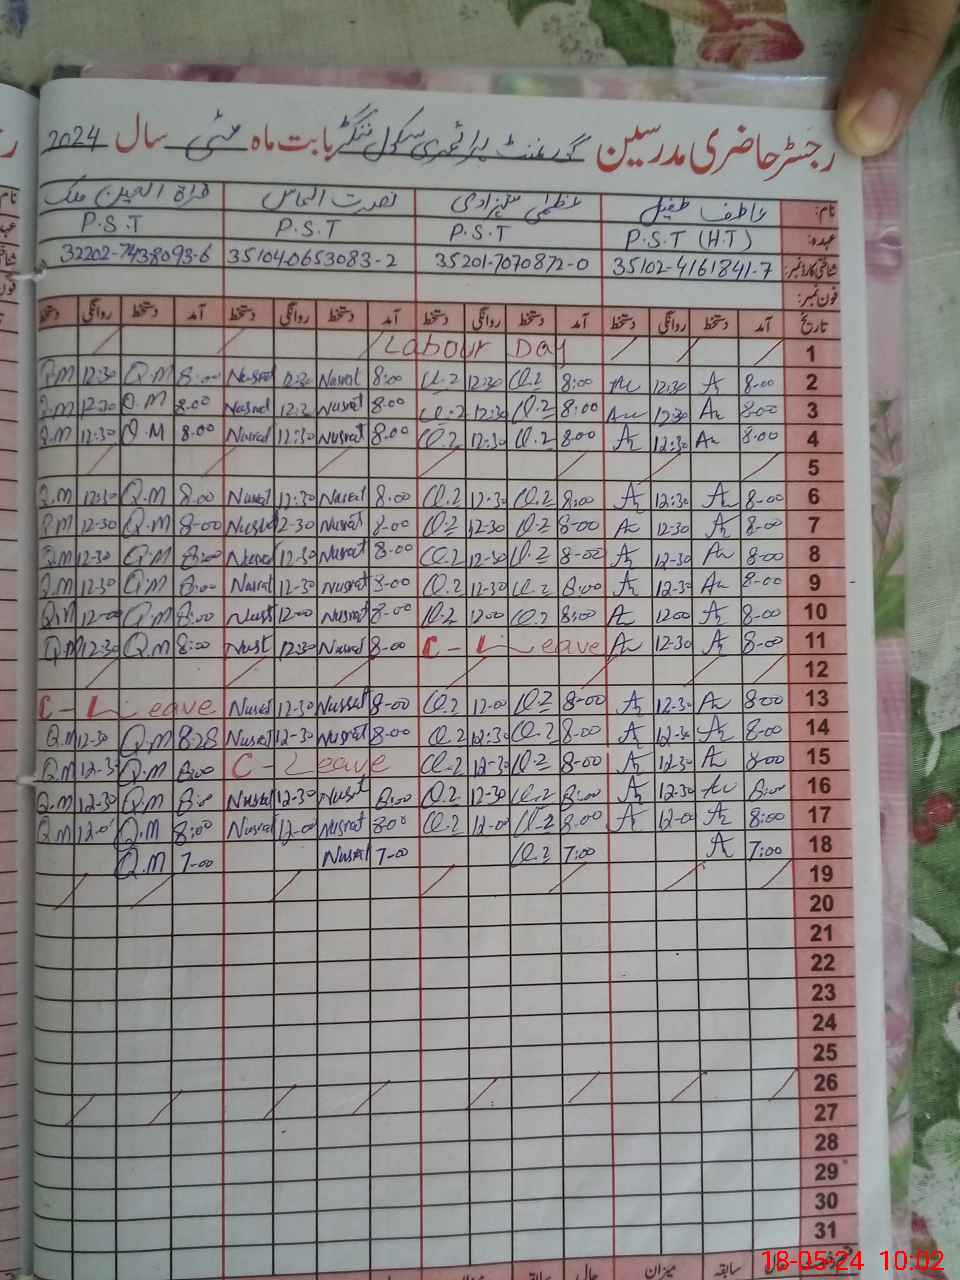 رجسٹر حاضری مدرسین گورنمنٹ پرائمری سکول بابت ماہ مئی سال 2024
نام: عاطف طفیل عظمیٰ شہزادی نصرت الماس قراۃ العین ملک
عہدہ: P.S.T (H.T) P.S.T P.S.T P.S.T
شناختی کارڈ نمبر: 35102-4161841-7 35201-7070872-0 35104-0653083-2 32202-7438093-6
فون نمبر:
تاریخ آمد دستخط روانگی دستخط آمد دستخط روانگی دستخط آمد دستخط روانگی دستخط آمد دستخط روانگی دستخط
1 Labour Day
2 8-00 12:30 8:00 12:30 8:00 Nusrat 12:30 Nusrat 8:00 Q.M 12:30 Q.M
3 8-00 12:30 8:00 12:30 8-00 Nusrat Nusrat 8.00 Q.M 12:30 Q.M
4 8:00 12:30 8.00 12:30 8.00 Nusrat 12:30 Nusrat 8.00 Q.M 12:30 Q.M
5
6 8-00 12:30 8:00 12-30 8.00 Nusrat 12:30 Nusrat 8.00 Q.M 12:30 Q.M
7 8-00 12-30 8-00 12-30 8-00 Nusrat 12-30 Nusrat 8-00 Q.M 12-30 Q.M
8 8-00 12-30 8-00 12-30 8-00 Nusrat 12-30 Nusrat 8:00 Q.M 12-30 Q.M
9 8-00 12-30 8:00 12-30 8-00 Nusrat 12-30 Nusrat 8:00 Q.M 12-30 Q.M
10 8-00 1200 8:00 1200 8-00 Nusrat 12-00 Nusrat 8:00 Q.M 12-00 Q.M
11 8-00 12-30 C - Leave 8-00 Nusrat 12:30 Nusrat 8:00 Q.M 12:30 Q.M
12
13 8-00 12-30 8-00 12-00 8-00 Nusrat 12-30 Nusrat C - Leave
14 8-00 12-30 8.00 12:30 8-00 Nusrat 12-30 Nusrat 8.28 Q.M 12-30 Q.M
15 8-00 12-30 8-00 12-30 C - Leave 8:00 Q.M 12-30 Q.M
16 8:00 12-30 8:00 12-30 8:00 Nusrat 12-30 Nusrat 8:00 Q.M 12-30 Q.M
17 8:00 12-00 8.00 12-00 8.00 Nusrat 12-00 Nusrat 8:00 Q.M 12-00 Q.M
18 7:00 7:00 7-00 Nusrat 7-00 Q.M
19
20
21
22
23
24
25
26
27
28
29
30
31
سابقہ میزان حال سابقہ
18-05-24 10:02